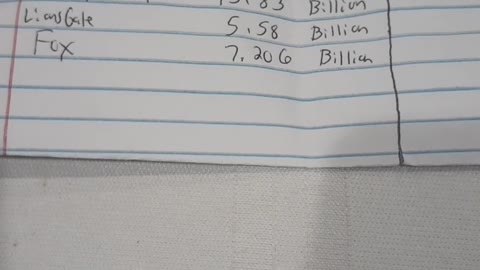 Billion
LionsGate 5.58 Billion
Fox 7.206 Billion